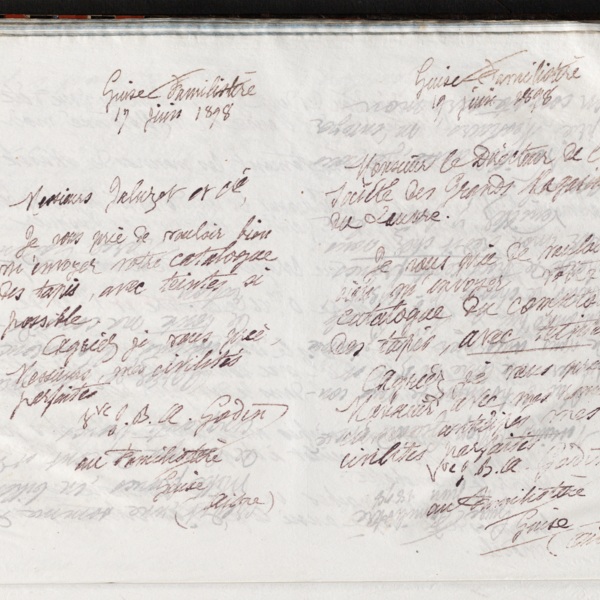 Guise Familistère
17 juin 1898
Messieurs Jaluzot et Cie,
Je vous prie de vouloir bien
m'envoyer votre catalogue
des tapis, avec teintes, si
possible.
Agréez, je vous prie,
Messieurs, mes civilités
parfaites
Vve J. B. A. Godin
au Familistère
Guise
(Aisne)
Guise Familistère
17 juin 1898
Monsieur le Directeur de l
Société des Grands Magasins
du Louvre.
Je vous prie de vouloir
bien m'envoyer
catalogue du comptoir
des tapis avec teintes
Agréez, je vous prie
Monsieur, avec mes
mes
civilités parfaites
Vve J. B. A. Godin
au Familistère
Guise